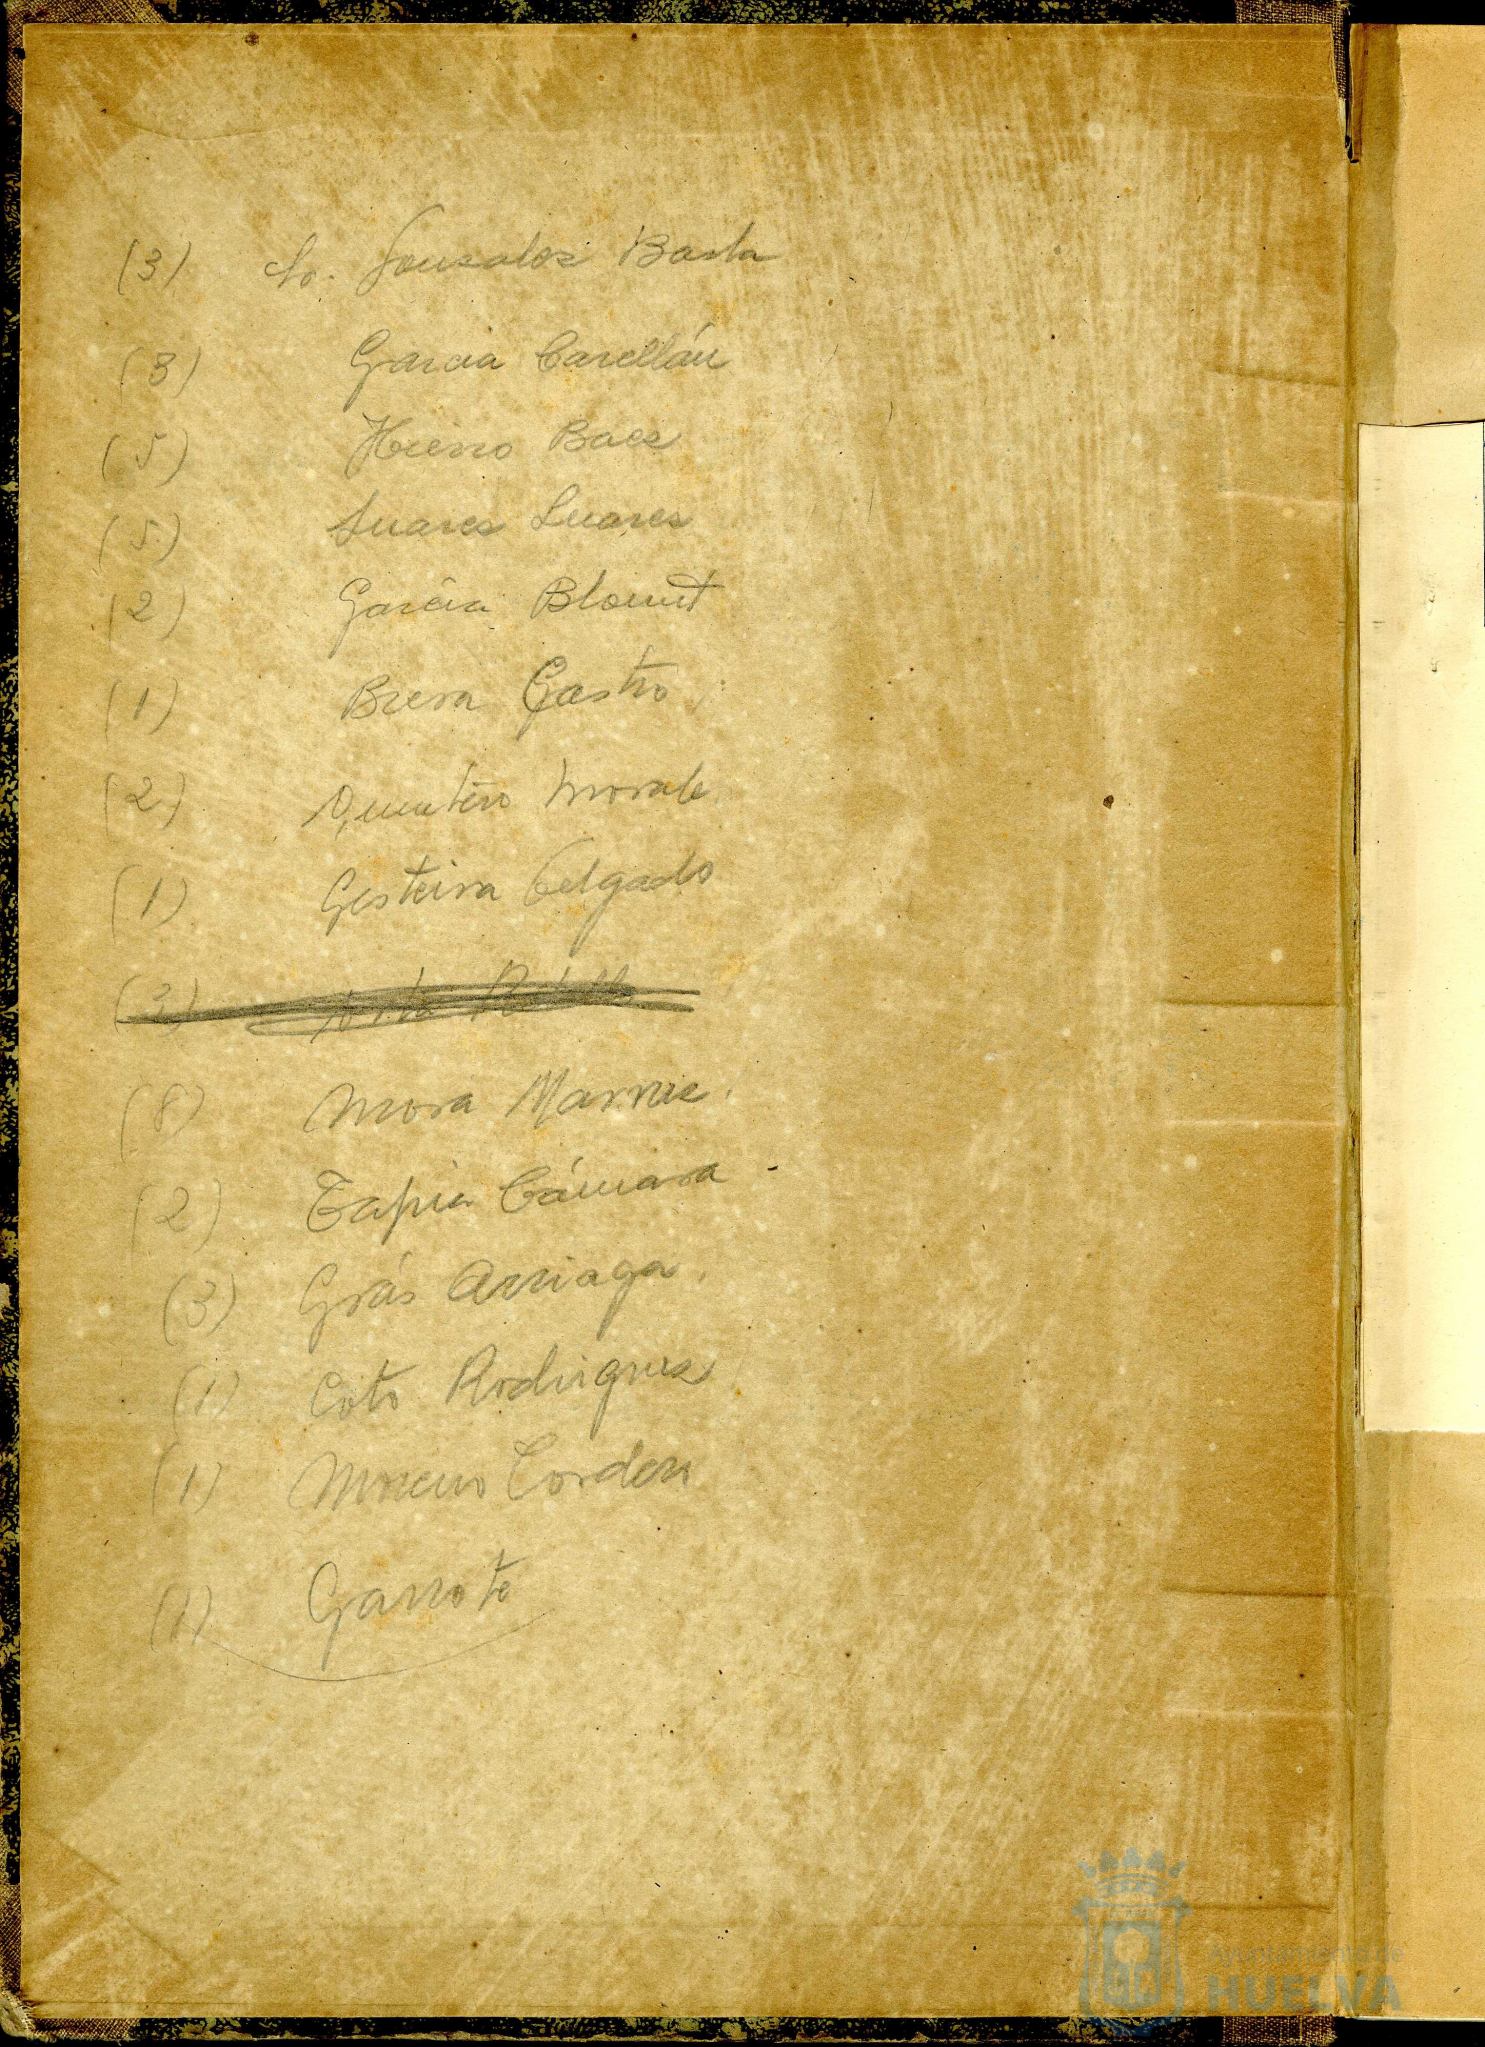 (3) So. Gonzalez Barba
(3) Garcia Carellán
(5) Hierro Baez
(5) Suarez Suarez
(2) Garcia Blount
(1) Brera Castro
(2) Quintero Morale
(1) Gesteira Delgado
(3)
(8) Mora Marruz.
(2) Tapia Cámara
(3) Grás Arriaga.
(1) Coto Rodriguez
(1) Moreno Cordero
(1) Garrote
Ayuntamiento de
HUELVA